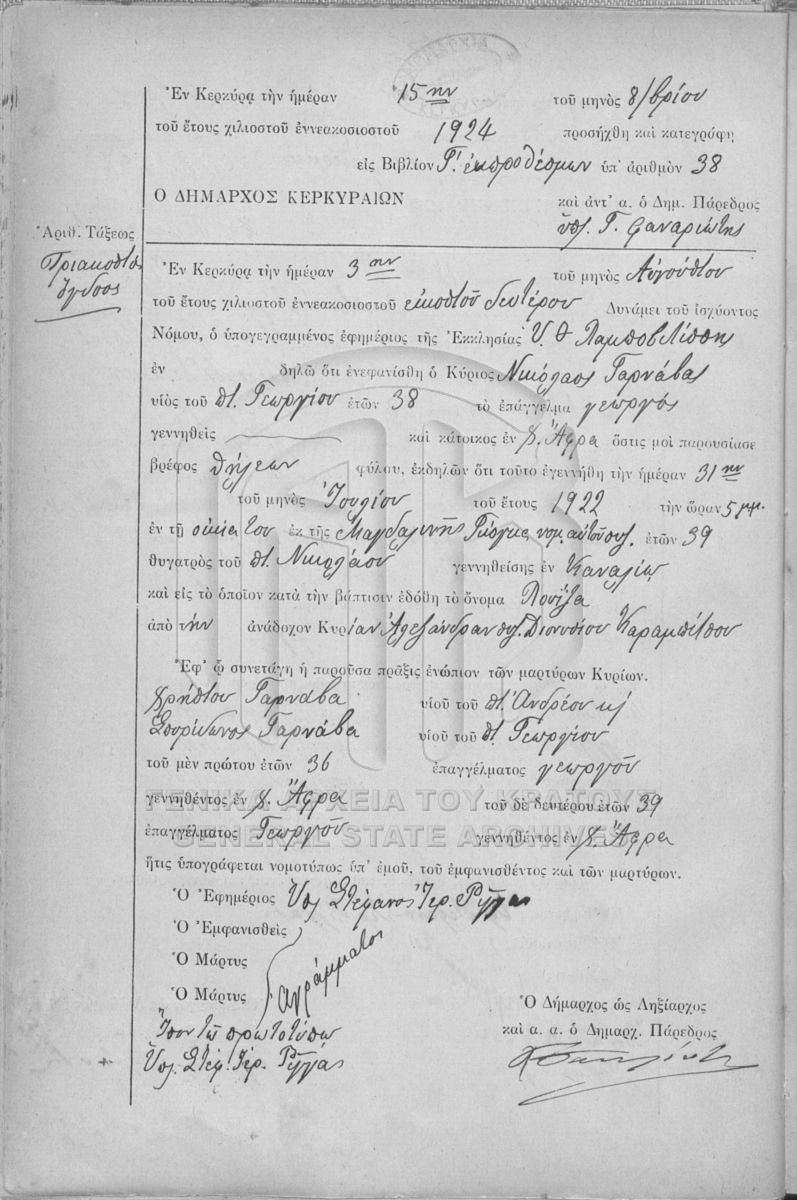 Ἐν Κερκύρᾳ τὴν ἡμέραν 15ην τοῦ μηνὸς 8/βρίου
τοῦ ἔτους χιλιοστοῦ ἐννεακοσιοστοῦ 1924 προσήχθη καὶ κατεγράφη
εἰς Βιβλίον Γ'. ἐκπροθέσμων ὑπ' ἀριθμὸν 38
Ο ΔΗΜΑΡΧΟΣ ΚΕΡΚΥΡΑΙΩΝ καὶ ἀντ' α. ὁ Δημ. Πάρεδρος
ὑπ. Γ. Φαναριώτης
Ἀριθ. Τάξεως
Τριακοστὸς
ὄγδοος
Ἐν Κερκύρᾳ τὴν ἡμέραν 3ην τοῦ μηνὸς Αὐγούστου
τοῦ ἔτους χιλιοστοῦ ἐννεακοσιοστοῦ εἰκοστοῦ δευτέρου Δυνάμει τοῦ ἰσχύοντος
Νόμου, ὁ ὑπογεγραμμένος ἐφημέριος τῆς Ἐκκλησίας Υ. Θ Λαμποβιτίσσης
ἐν δηλῶ ὅτι ἐνεφανίσθη ὁ Κύριος Νικόλαος Γαρνάβας
υἱὸς τοῦ π. Γεωργίου ἐτῶν 38 τὸ ἐπάγγελμα γεωργὸς
γεννηθεὶς καὶ κάτοικος ἐν χ. Ἄφρα ὅστις μοι παρουσίασε
βρέφος θήλεων φύλου, ἐκδηλῶν ὅτι τοῦτο ἐγεννήθη τὴν ἡμέραν 31ην
τοῦ μηνὸς Ἰουλίου τοῦ ἔτους 1922 τὴν ὥραν 5 μμ.
ἐν τῇ οἰκίᾳ του ἐκ τῆς Μαγδαλινῆς νομ. αὐτοῦ συζ. ἐτῶν 39
θυγατρὸς τοῦ π. Νικολάου γεννηθείσης ἐν Καναλίῳ
καὶ εἰς τὸ ὁποῖον κατὰ τὴν βάπτισιν ἐδόθη τὸ ὄνομα Λουίζα
ἀπὸ τὴν ἀνάδοχον Κυρίαν Ἀλεξάνδραν συζ. Διονυσίου Καραμπίτσου
Ἐφ' ᾧ συνετάγη ἡ παροῦσα πρᾶξις ἐνώπιον τῶν μαρτύρων Κυρίων.
Χρήστου Γαρνάβα υἱοῦ τοῦ π. Ἀνδρέου κ)
Σπυρίδωνος Γαρνάβα υἱοῦ τοῦ π. Γεωργίου
τοῦ μὲν πρώτου ἐτῶν 36 ἐπαγγέλματος γεωργοῦ
γεννηθέντος ἐν χ. Ἄφρα τοῦ δὲ δευτέρου ἐτῶν 39
ΓΕΝΙΚΑ ΑΡΧΕΙΑ ΤΟΥ ΚΡΑΤΟΥΣ
ἐπαγγέλματος Γεωργοῦ γεννηθέντος ἐν χ. Ἄφρα
GENERAL STATE ARCHIVES
ἥτις ὑπογράφεται νομοτύπως ὑπ' ἐμοῦ, τοῦ ἐμφανισθέντος καὶ τῶν μαρτύρων.
Ὁ Ἐφημέριος Ὑπ. Στέφανος Ἱερ. Ρίγγας
Ὁ Ἐμφανισθεὶς
Ὁ Μάρτυς ἀγράμματοι
Ὁ Μάρτυς
Ὁ Δήμαρχος ὡς Ληξίαρχος
Ἴσον τῷ πρωτοτύπῳ
καὶ α. α. ὁ Δημαρχ. Πάρεδρος
Ὑπ. Στέφ. Ἱερ. Ρίγγας